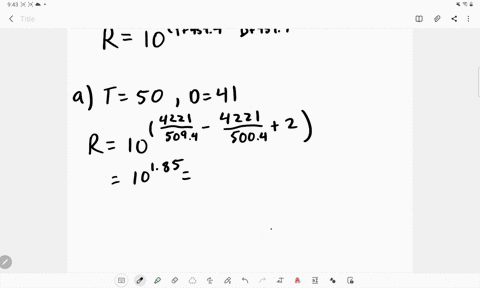 9:43
Title
R = 10
a) T = 50 , D = 41
R = 10^(4221/509.4 - 4221/500.4 + 2)
= 10^1.85 =